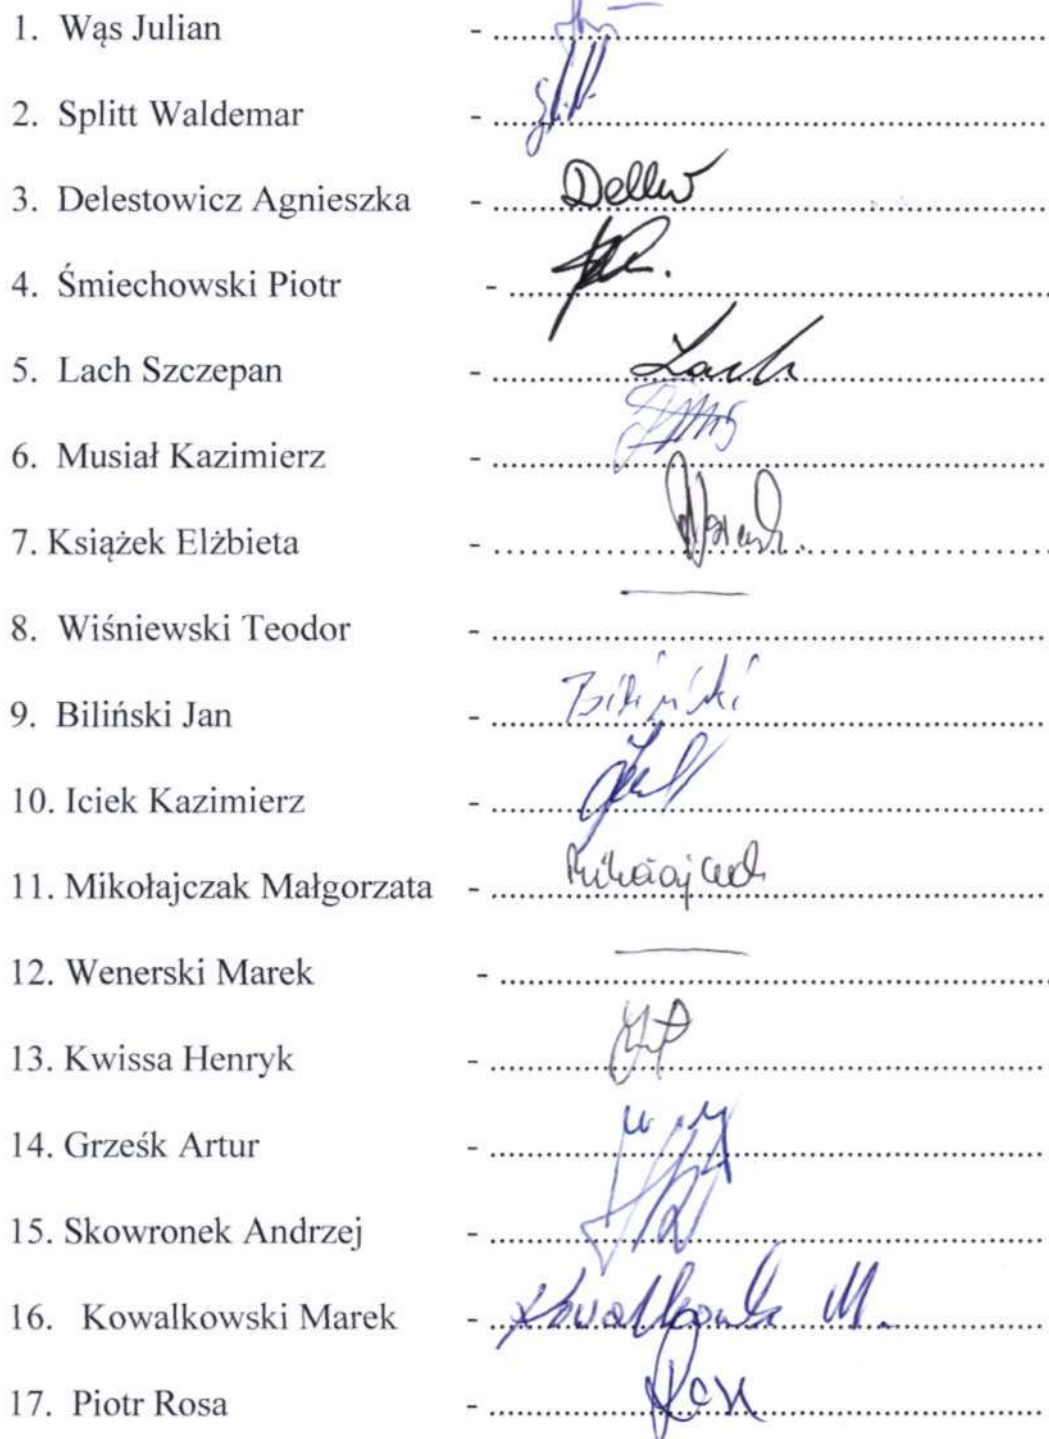 1. Wąs Julian - ..........
2. Splitt Waldemar - ..........
3. Delestowicz Agnieszka - ..........
4. Śmiechowski Piotr - ..........
5. Lach Szczepan - .......... Lach
6. Musiał Kazimierz - ..........
7. Książek Elżbieta - ..........
8. Wiśniewski Teodor - ..........
9. Biliński Jan - .......... Biliński
10. Iciek Kazimierz - ..........
11. Mikołajczak Małgorzata - .......... Mikołajczak
12. Wenerski Marek - ..........
13. Kwissa Henryk - ..........
14. Grześk Artur - ..........
15. Skowronek Andrzej - ..........
16. Kowalkowski Marek - .......... Kowalkowski M.
17. Piotr Rosa - ..........